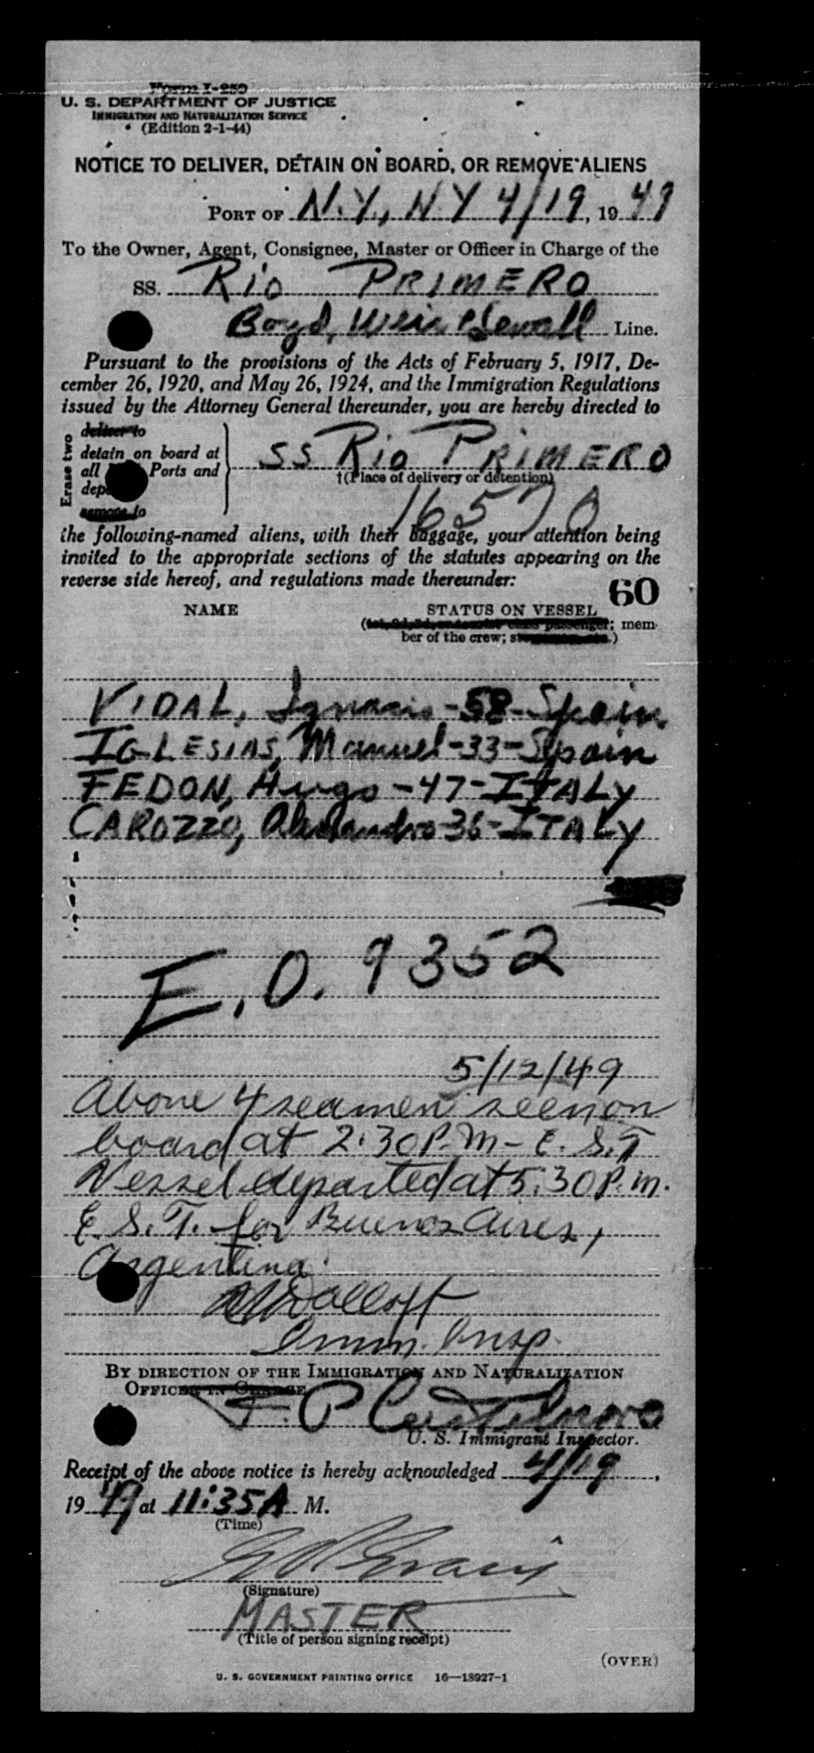 Form I-259
U. S. DEPARTMENT OF JUSTICE
IMMIGRATION AND NATURALIZATION SERVICE
(Edition 2-1-44)
NOTICE TO DELIVER, DETAIN ON BOARD, OR REMOVE ALIENS
PORT OF N.Y., NY 4/19, 1949
To the Owner, Agent, Consignee, Master or Officer in Charge of the
SS. Rio PRIMERO
Boyd, Weir & Sewell Line.
Pursuant to the provisions of the Acts of February 5, 1917, De-
cember 26, 1920, and May 26, 1924, and the Immigration Regulations
issued by the Attorney General thereunder, you are hereby directed to
Erase two
deliver to
detain on board at
all Ports and
remove to
SS Rio PRIMERO
†(Place of delivery or detention)
16570
the following-named aliens, with their baggage, your attention being
invited to the appropriate sections of the statutes appearing on the
reverse side hereof, and regulations made thereunder:
60
NAME STATUS ON VESSEL
(1st, 2d, 3d, or tourist class passenger; mem-
ber of the crew;
VIDAL, Ignacio-58-Spain
IGLESIAS, Manuel-33-Spain
FEDON, Hugo-47-ITALY
CAROZZO, Alessandro-36-ITALY
E.O. 9352
5/12/49
Above 4 seamen seen on
board at 2:30 P.M- E.S.T
Vessel departed at 5:30 P.m.
E.S.T. for Buenos Aires,
Argentina.
Imm. Insp.
BY DIRECTION OF THE IMMIGRATION AND NATURALIZATION
OFFICER IN CHARGE
F. P.
U. S. Immigrant Inspector.
Receipt of the above notice is hereby acknowledged 4/19,
1949 at 11:35 A M.
(Time)
(Signature)
MASTER
(Title of person signing receipt)
(OVER)
U. S. GOVERNMENT PRINTING OFFICE 16—18927-1